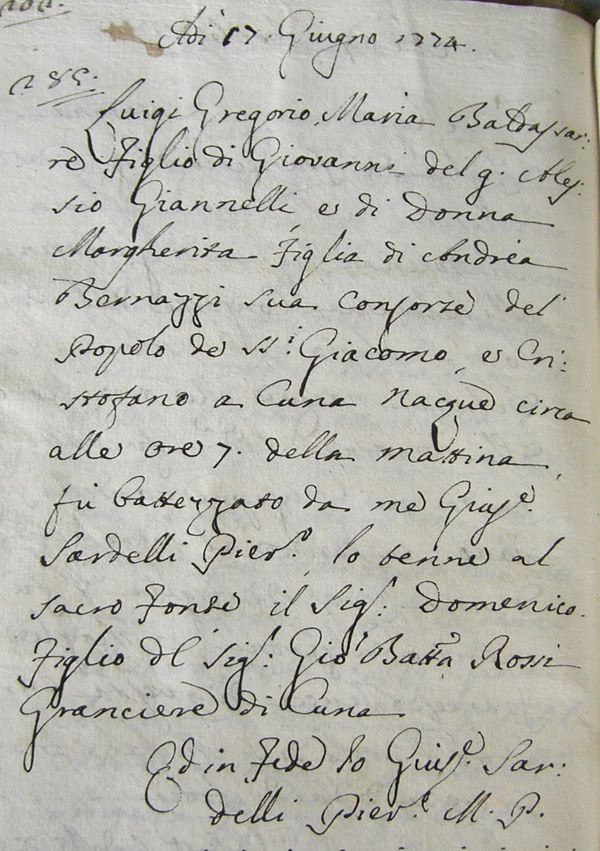 Adi 17. Giugno 1774.
285.
Luigi Gregorio Maria Baldassar:
re figlio di Giovanni del q. Ales:
sio Giannelli, e di Donna
Margherita figlia di Andrea
Bernazzi sua Consorte del
Popolo de SS.i Giacomo, e Cri:
stofano a Cuna nacque circa
alle ore 7. della mattina
fù battezzato da me Gius.e
Sardelli Piev.o lo tenne al
sacro fonte il Sig.r Domenico
figlio dl Sig.r Gio Batta Rossi
Granciere di Cuna
Ed in fede Io Gius.e Sar:
delli Piev.e M. P.